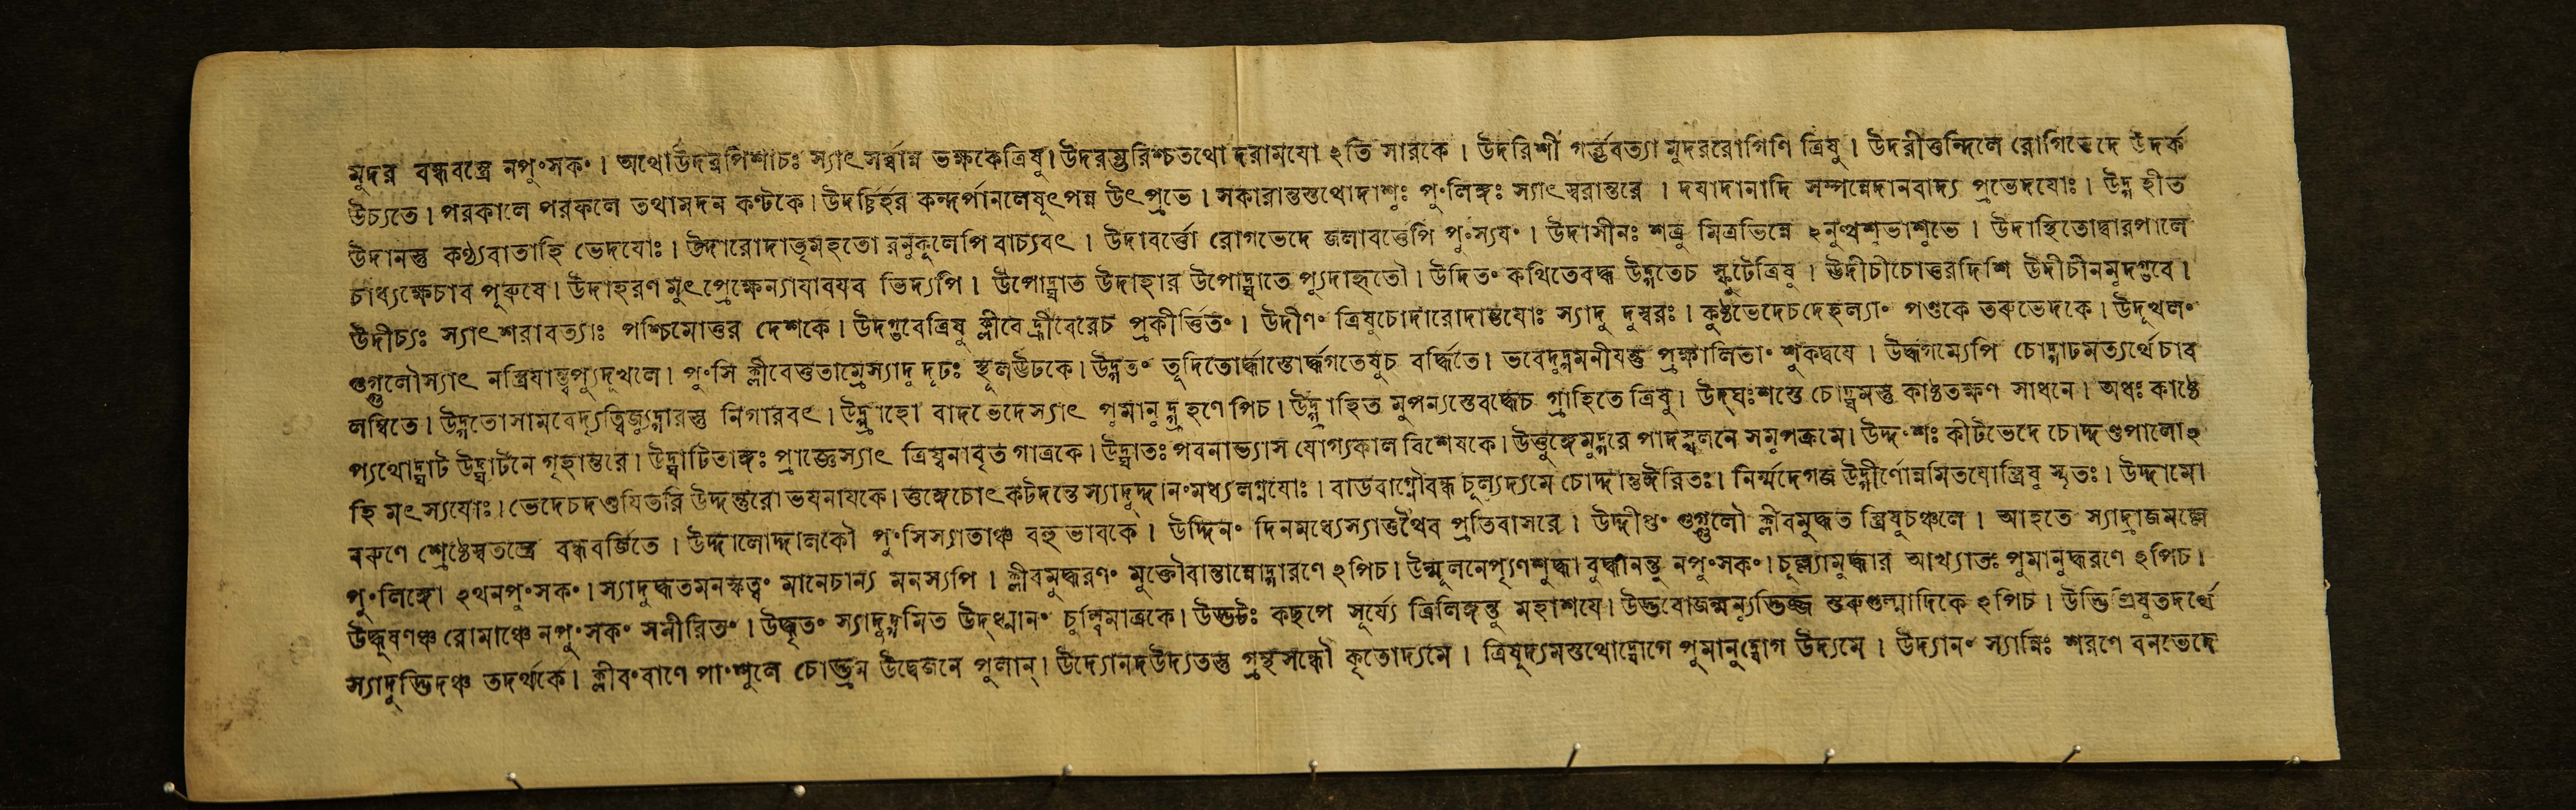 মুদর বন্ধবস্ত্রে নপুংসকং। অথোউদরপিশাচঃ স্যাৎ সর্ব্বান্ন ভক্ষকেত্রিষু। উদরম্ভরিশ্চতথো দরামযো ঽতি সারকে। উদরিণী গর্ব্ভবত্যা মুদররোগিণি ত্রিষু। উদরীত্তন্দিলে রোগিভেদে উদর্ক
উচ্যতে। পরকালে পরফলে তথামদন কণ্টকে। উদর্চ্চির্হর কন্দর্পানলেষূৎপন্ন উৎপ্রভে। সকারান্তস্তথোদাশ্বঃ পুংলিঙ্গঃ স্যাৎস্বরান্তরে। দযাদানাদি সম্পন্নেদানবাদ্য প্রভেদযোঃ। উদ্গ্ হীত
উদানস্তু কণ্ঠ্যবাতাহি ভেদযোঃ। উদারোদাতৃমহতো রনুকুলেপি বাচ্যবৎ। উদাবর্ত্তো রোগভেদে জলাবর্ত্তেপি পুংস্যযং। উদাসীনঃ শত্রু মিত্রভিন্নে শুভাশুভে। উদাস্থিতোদ্বারপালে
চাধ্যক্ষেচাব পূরুষে। উদাহরণ মুৎপ্রেক্ষেন্যাযাবযব ভিদ্যপি। উপোদ্ঘাত উদাহার উপোদ্ঘাতে প্যুদাহৃতৌ। উদিতং কথিতেবদ্ধ উদ্গতেচ স্ফুটেত্রিষু। উদীচীচোত্তরদিশি উদীচীনমুদগ্ভবে।
উদীচ্যঃ স্যাৎশরাবত্যাঃ পশ্চিমোত্তর দেশকে। উদগ্ভবেত্রিষু ক্লীবে হ্রীবেরেচ প্রকীর্ত্তিতং। উদীণং ত্রিষুচোদারোদান্তযোঃ স্যাদু দুম্বরঃ। কুষ্ঠভেদেচদেহল্যাং পণ্ডকে তরুভেদকে। উদূখলং
গুগ্গুলৌস্যাৎ নস্ত্রিযাম্ভ্বপ্যুদূখলে। পুংসি ক্লীবেত্ততাম্রেস্যাদু দূঢঃ স্থূলউঢকে। উদ্গতং তূদিতোর্দ্ধাস্তোর্দ্ধগতেষুচ বর্দ্ধিতে। ভবেদুদ্গমনীযন্তু প্রক্ষালিতাং শুকদ্বযে। উর্দ্ধগম্যেপি চোদ্গাঢমত্যর্থেচাব
লম্বিতে। উদ্গতোসামবেদ্যৃত্বিজ্যুদ্গারস্তু নিগারবৎ। উদ্গ্রাহো বাদভেদেস্যাৎ পুমানুদ্গ্রহণেপিচ। উদ্গ্রাহিত মুপন্যস্তেবর্দ্ধেচ গ্রাহিতে ত্রিষু। উদ্ঘঃশস্তে চোদ্ঘনস্তু কাষ্ঠতক্ষণ সাধনে। অধঃ কাষ্ঠে
প্যথোদ্ঘাট উদ্ঘাটনে গৃহান্তরে। উদ্ঘাটিতাঙ্গঃ প্রাজ্ঞেস্যাৎ ত্রিষ্বনাবৃত গাত্রকে। উদ্ঘাতঃ পবনাভ্যাস যোগ্যকাল বিশেষকে। উত্তুঙ্গেমুদ্গরে পাদস্খলনে সমুপক্রমে। উদ্দংশঃ কীটভেদে চোদ্দণ্ডপালোঽ
হি মৎস্যযোঃ। ভেদেচদণ্ডযিতরি উদ্দন্তুরো ভযনাযকে। ত্তঙ্গেচোৎকটদন্তে স্যাদুদ্দানংমধ্যলগ্নযোঃ। বাডবাগ্নৌবন্ধ চূল্যুদ্যমে চোদ্দান্তঈরিতঃ। নির্ম্মদেগজ উদ্গীর্ণোন্নমিতযোস্ত্রিষু স্মৃতঃ। উদ্দামো
বরুণে শ্রেষ্ঠেস্বতন্ত্রে বন্ধবর্জিতে। উদ্দালোদ্দালকৌ পুংসিস্যাতাঞ্চ বহু ভাবকে। উদ্দিনং দিনমধ্যেস্যাত্তথৈব প্রতিবাসরে। উদ্দীপ্তং গুগ্গুলৌ ক্লীবমুদ্ধত স্ত্রিষুচঞ্চলে। আহতে স্যাদ্রাজমল্লে
পুংলিঙ্গো ঽথনপুংসকং। স্যাদুদ্ধতমনস্কত্বং মানেচান্য মনস্যপি। ক্লীবমুদ্ধরণং মুক্তৌবান্তান্নোদ্গারণে ঽপিচ। উন্মূলনেপ্যৃণশুদ্ধা বুদ্ধানন্তু নপুংসকং। চুল্ল্যামুদ্ধার আখ্যাতঃ পুমানুদ্ধরণে ঽপিচ।
উদ্ধুষণঞ্চ রোমাঞ্চে নপুংসকং সমীরিতং। উদ্ধৃতং স্যাদুদ্গমিত উদ্ধ্মানং চুল্লিমাত্রকে। উদ্ভটঃ কচ্ছপে সূর্য্যে ত্রিলিঙ্গন্তু মহাশযে। উদ্ভবোজন্মন্যুদ্ভিজ্জ স্তরুগুল্মাদিকে ঽপিচ। উদ্ভিত্ত্রিষুতদর্থে
স্যাদুদ্ভিদঞ্চ তদর্থকে। ক্লীবংবাণে পাংশুলে চোদ্ভ্রম উদ্বেজনে পুলান্। উদ্যোনদউদ্যতস্তু গ্রন্থসন্ধৌ কৃতোদ্যমে। ত্রিষুদ্যমস্তথোদ্যোগে পুমানুদ্যোগ উদ্যমে। উদ্যানং স্যান্নিঃ শরণে বনভেদে